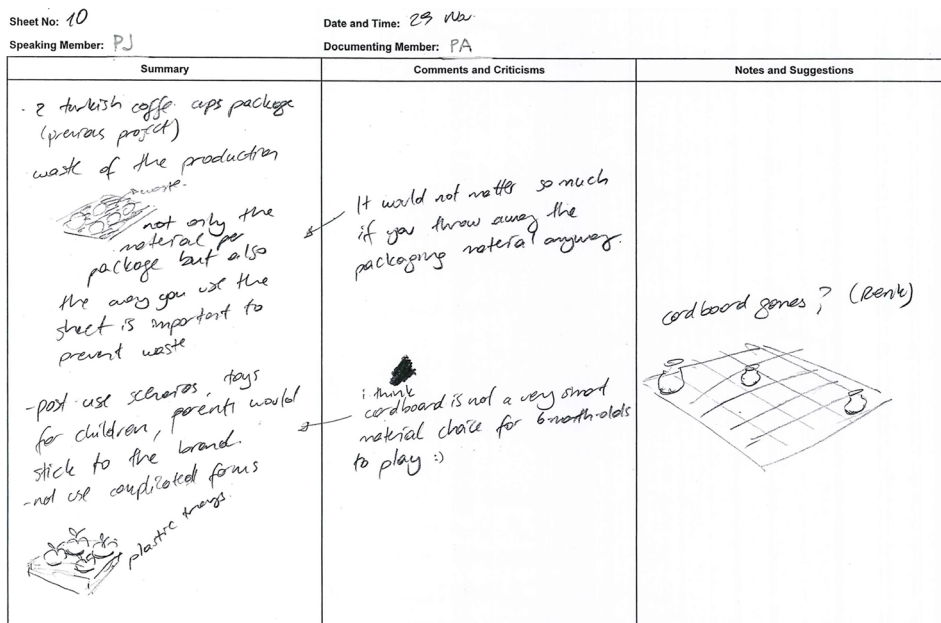 Sheet No: 10
Date and Time: 29 Nov.
Speaking Member: PJ
Documenting Member: PA
Summary
Comments and Criticisms
Notes and Suggestions
- 2 turkish coffe cups package
(previous project)
waste of the production
waste.
not only the
material per
package but also
the way you use the
sheet is important to
prevent waste
- post use scenarios, toys
for children, parents would
stick to the brand.
- not use complicated forms
plastic trays.
It would not matter so much
if you throw away the
packaging material anyway.
i think
cardboard is not a very smart
material choice for 6-month-olds
to play :)
cardboard games? (Renk)